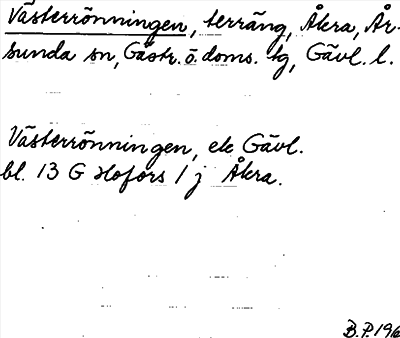 Västerrönningen, terräng, Åkra, År-
sunda sn, Gästr. ö. doms. tg, Gävl. l.
Västerrönningen, ek Gävl.
bl. 13 G Hofors 1 j Åkra.
B.P. 196